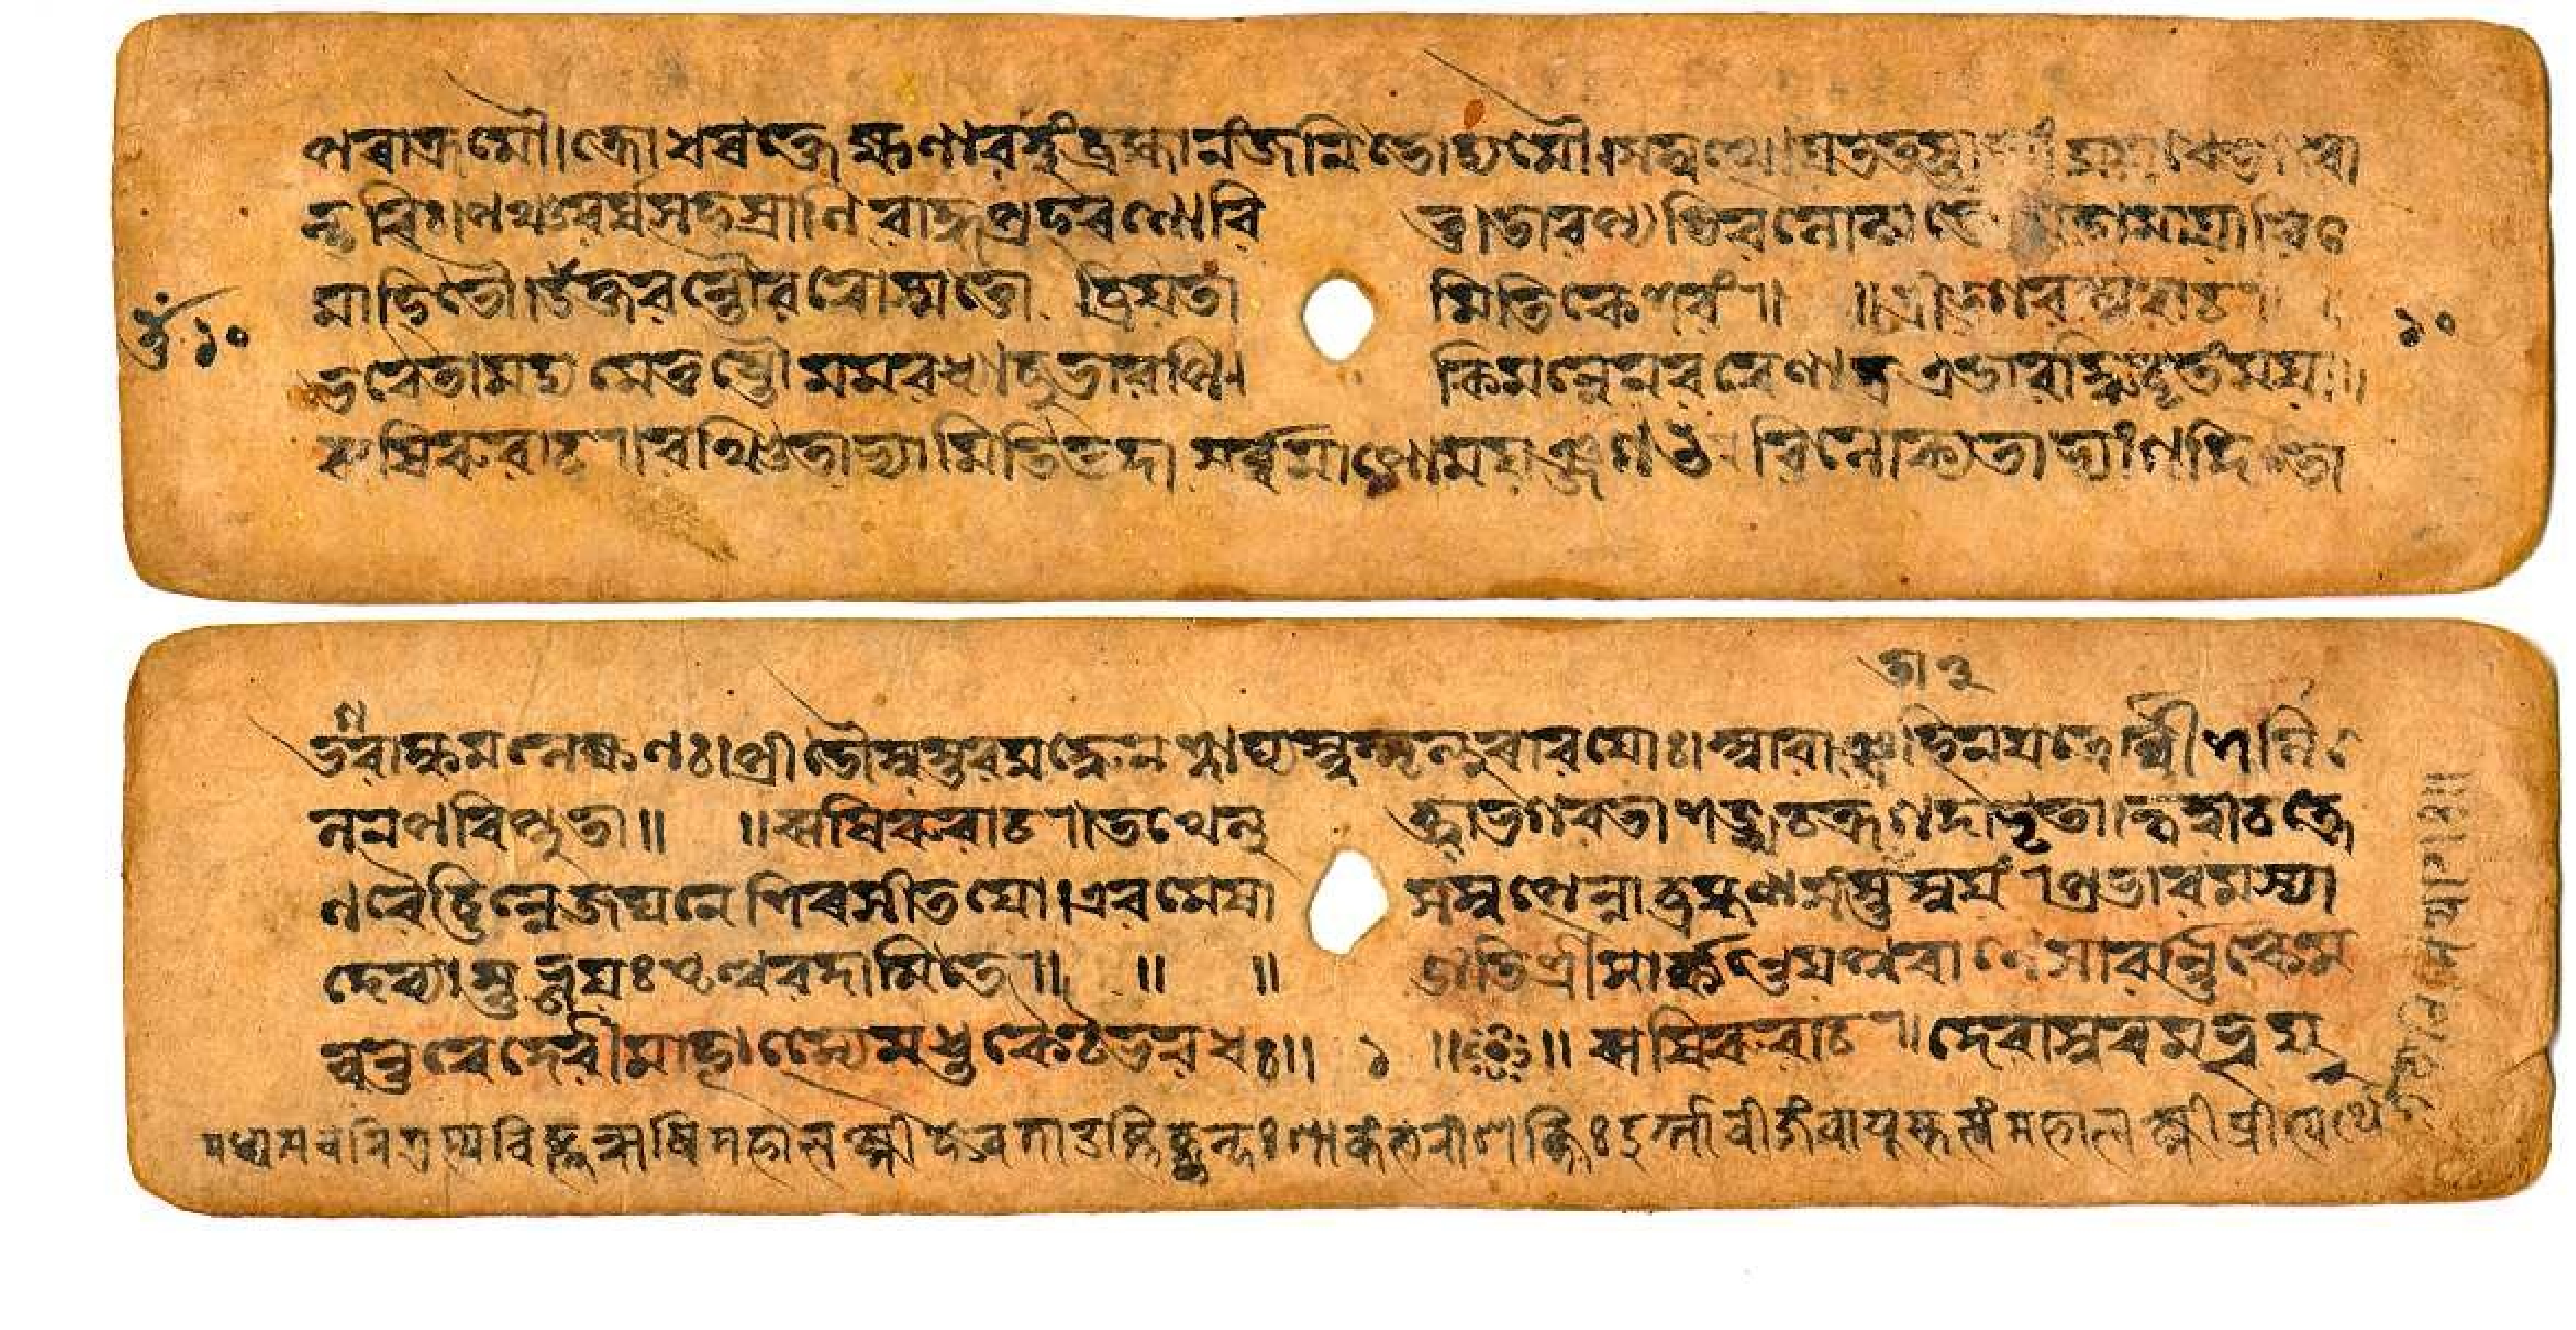 পৰাক্রমৌ। ক্রোধৰক্তেক্ষণাবত্তুং ব্রহ্মানং জনিতোদ্যমৌ। সমুত্থায় ততস্তাভ্যাং যুযুধে ভগবা
ন্হৰিঃ। পঞ্চবর্ষসহস্রাণি বাহুপ্রহৰণো বি ভু। তাবপ্যতিবলোন্মত্তৌ মহামায়াবি
মোহিতৌ। উক্তবন্তৌ বৰোস্মত্তো ব্রিয়তা মিতি কেশবং॥ ॥ শ্রীভগবানুবাচ॥
ওঁ ১০
১০
ভবেতামদ্য মে তুষ্টৌ মম বধ্যাবুভাবপি। কিমন্যেন বৰেণাত্র এতাবদ্ধি বৃতং মম॥
ঋষিৰুবাচ॥ বঞ্চিতাভ্যামিতি তদা সর্ব্বমাপোময়ং জগৎ। বিলোক্য তাভ্যাং গদিতো
ভগবান্কমলেক্ষণঃ। প্রীতৌ স্বস্তব যুদ্ধেন শ্লাঘ্যস্ত্বং মৃত্যুৰাবয়োঃ। আবাঞ্জহি ন যত্রোর্ব্বী সলিলে
ন পৰিপ্লুতা॥ ॥ ঋষিৰুবাচ॥ তথেত্যু ক্ত্বা ভগবতা শঙ্খচক্রগদাভৃতা। কৃত্বা চক্রে
ণ বৈ ছিন্নে জঘনে শিৰসী তয়োঃ। এবমেষা সমুৎপন্না ব্রহ্মণা সংস্তুতা স্বয়ং। প্রভাবমস্যা
দেব্যাস্তু ভূয়ঃ শৃণু বদামি তে॥ ॥ ॥ ইতি শ্রীমার্কণ্ডেয়পুৰাণে সাবর্ন্নিকে ম
ন্বন্তৰে দেবীমাহাত্ম্যে মধুকৈটভবধঃ॥ ১ ॥ ॥ ঋষিৰুবাচ॥ দেবাসুৰমভূদ্যু
মধ্যমচৰিত্রস্য বিষ্ণুঋষি মহালক্ষ্মী দেবতা উষ্ণিক্ছন্দঃ শাকংভৰী শক্তিঃ দুর্গা বীজং বায়ুস্তত্ত্বং মহালক্ষ্মীপ্রীত্যর্থে